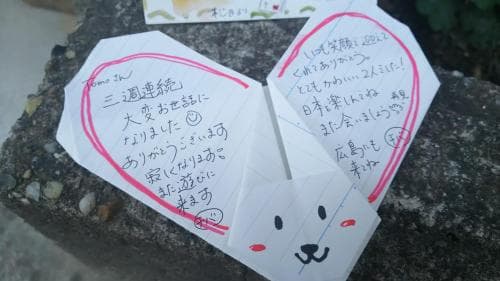 Tomoさん
三週連続
大変お世話に
なりました
ありがとうございます
寂しくなります。
また遊びに
来ます
いつも笑顔で迎えて
くれてありがとう。
とてもかわいい2人でした!
日本を楽しんでね
また会いましょう
広島にも
来てね